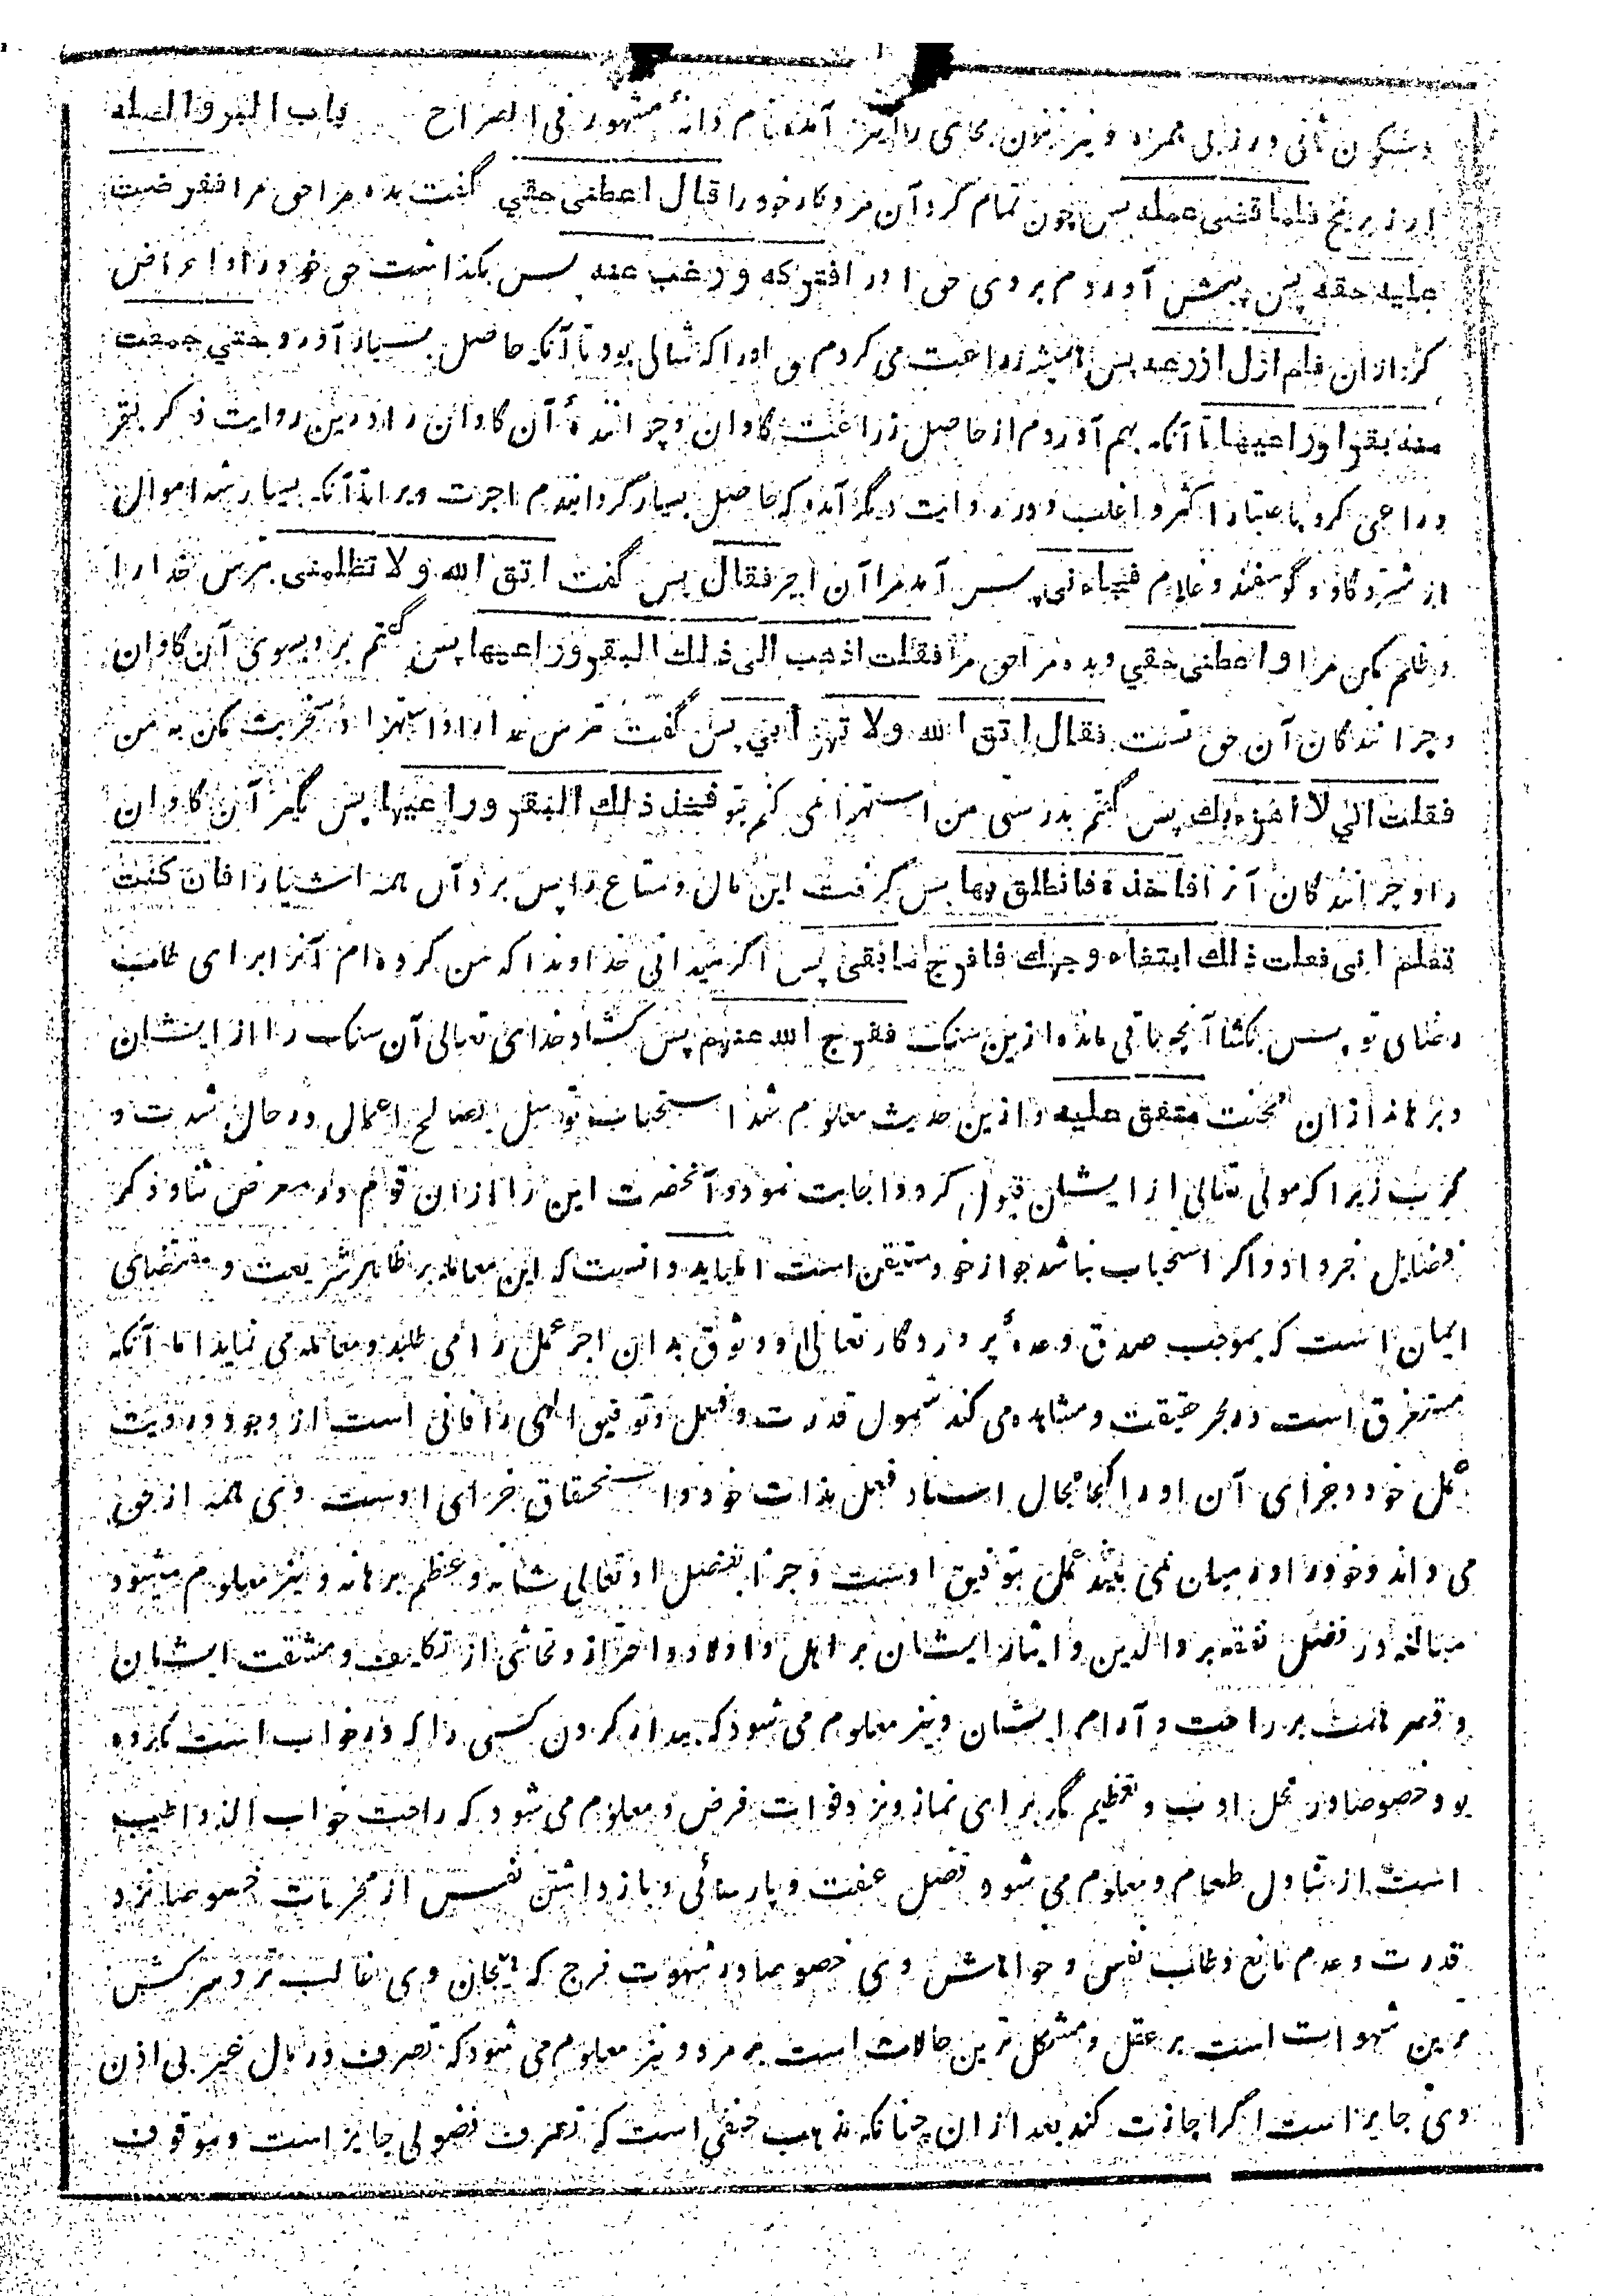 وسکون ثانی ورزبی همزه ونیز بنون بجای را ایز آمده نام دانهٔ مشهور فی الصراح باب البر والصله
ارز برنج فلما قضی عمله پس چون تمام کرد آن مزدکار خود را قال اعطنی حقی گفت بده مرا حق مرا فعرضت
علیه حقه پس پیش آوردم بر وی حق او را فترکه و رغب عنه پس بگذاشت حق خود را و اعراض
کرد ازان فلم ازل ازرعه پس همیشه زراعت می کردم حق او را که شالی بود تا آنکه حاصل بسیار آورد حتی جمعت
منه بقرا وراعیها تا آنکه بهم آوردم از حاصل زراعت گاوان و چرانندهٔ آن گاوان را و درین روایت ذکر بقر
وراعی کرد باعتبار اکثر و اغلب و در روایت دیگر آمده که حاصل بسیار گردانیدم اجرت ویرا تا آنکه بسیار شد اموال
از شتر و گاو و گوسفند و غلام فجاءنی پس آمد مرا آن اجیر فقال پس گفت اتق الله ولا تظلمنی بترس خدا را
و ظلم مکن مرا واعطنی حقی و بده مرا حق مرا فقلت اذهب الی ذلك البقر وراعیها پس گفتم برو بسوی آن گاوان
و چرانندگان آن حق تست فقال اتق الله ولا تهزأ بی پس گفت بترس خدا را و استهزا و سخریت مکن به من
فقلت انی لا اهزء بك پس گفتم بدرستی من استهزا نمی کنم بتو فخذ ذلك البقر وراعیها پس بگیر آن گاوان
را و چرانندگان آنرا فاخذه فانطلق بها پس گرفت این مال و متاع را پس برد آن همه اشیا را فان کنت
تعلم انی فعلت ذلك ابتغاء وجهك فافرج ما بقی پس اگر میدانی خداوندا که من کرده ام آنرا برای طلب
رضای تو پس بکشا آنچه باقی مانده ازین سنگ ففرج الله عنهم پس کشاد خدای تعالی آن سنگ را از ایشان
و برهاند ازان محنت متفق علیه و ازین حدیث معلوم شد استحباب توسل بصالح اعمال در حال شدت و
کرب زیرا که مولی تعالی از ایشان قبول کرد و اجابت نمود و آنحضرت این را ازان قوم در معرض ثنا و ذکر
فضایل خبر داد و اگر استحباب نباشد جواز خود متیقن است اما باید دانست که این معامله بر ظاهر شریعت و مقتضای
ایمان است که بموجب صدق وعدهٔ پروردگار تعالی و وثوق بدان اجر عمل را می طلبد و معامله می نماید اما آنکه
مستغرق است در بحر حقیقت و مشاهده می کند شمول قدرت و فعل و توفیق الهی را فانی است از وجود و رویت
عمل خود و جزای آن او را کجا مجال اسناد فعل بذات خود و استحقاق جزای اوست وی همه از حق
می داند و خود را در میان نمی بیند عمل بتوفیق اوست و جزا بفضل او تعالی شانه و عظم برهانه و نیز معلوم میشود
مبالغه در فضل نفقه بر والدین و ایثار ایشان بر اهل و اولاد و احتراز و تحاشی از تکلیف و مشقت ایشان
و قصر همت بر راحت و آرام ایشان و نیز معلوم می شود که بیدار کردن کسی را که در خواب است مکروه
بود خصوصا در محل ادب و تعظیم مگر برای نماز ونزد فوات فرض و معلوم می شود که راحت خواب الذ و اطیب
است از تناول طعام و معلوم می شود فضل عفت و پارسائی و باز داشتن نفس از محرمات خصوصا نزد
قدرت و عدم مانع و طلب نفس و خواهش وی خصوصا در شهوت فرج که هیجان وی غالب تر و سرکش
ترین شهوات است بر عقل و مشکل ترین حالات است بر مرد و نیز معلوم می شود که تصرف در مال غیر بی اذن
وی جایز است اگر اجازت کند بعد ازان چنانکه مذهب حنفی است که تصرف فضولی جایز است و موقوف